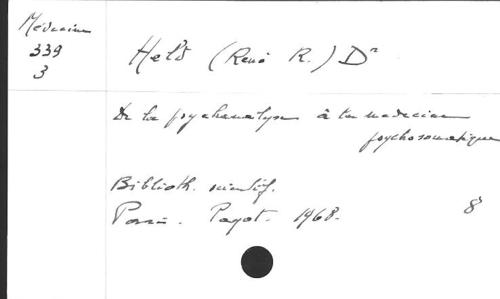 Médecine
339
3
Held (René R.) Dr
De la psychanalyse à la médecine
psychosomatique
Biblioth. scientif.
Paris. Payot. 1968.
8°